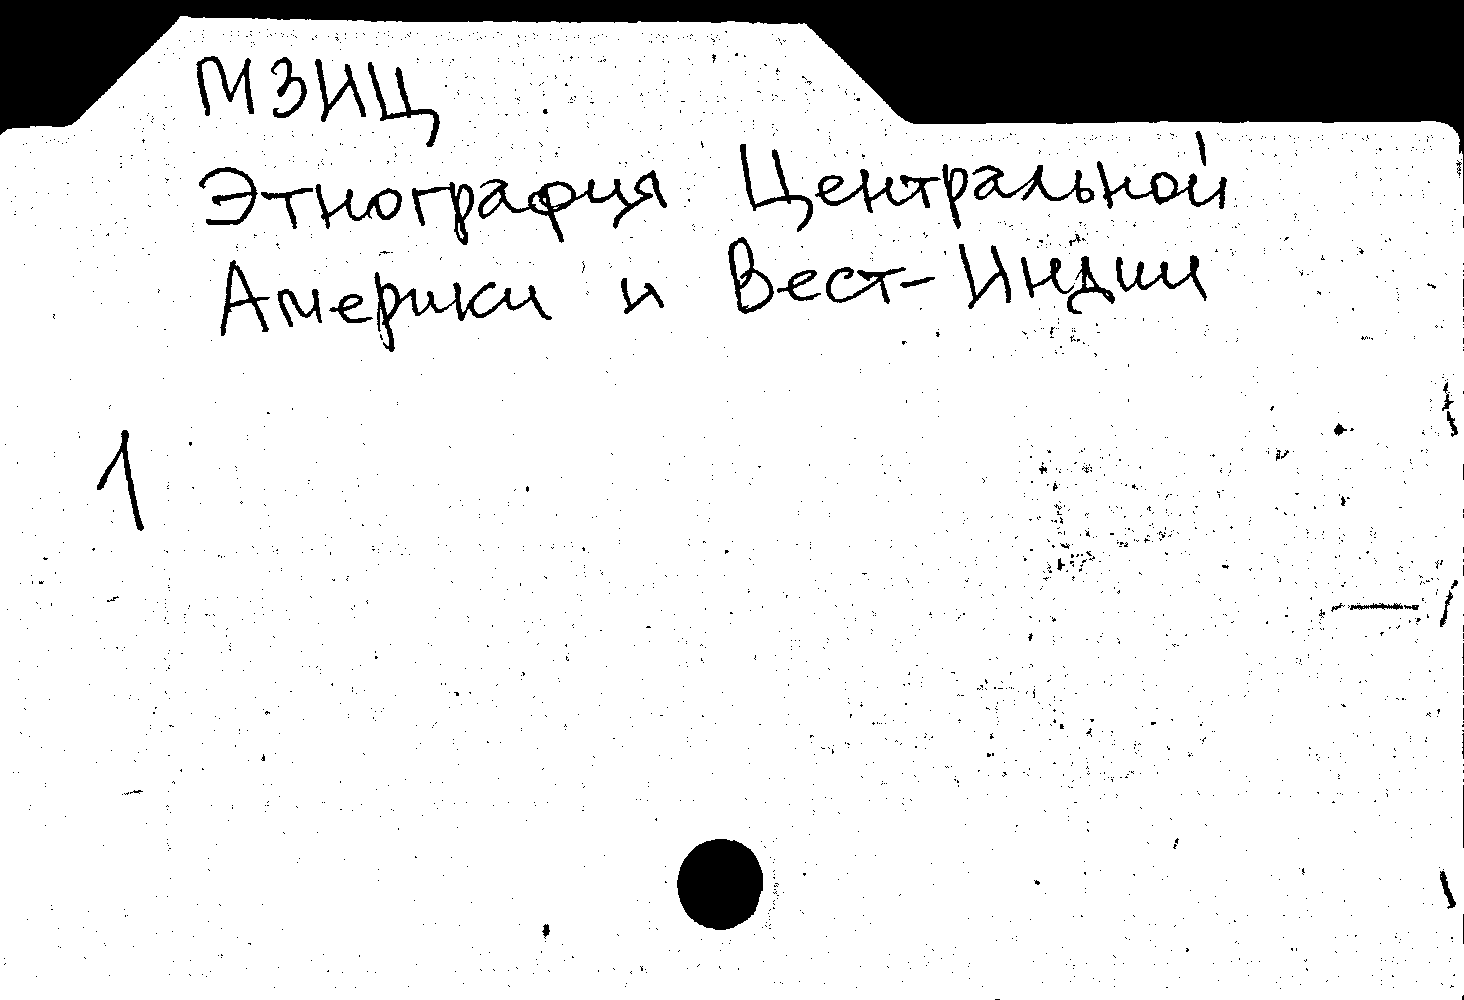 МЗИЦ
Этнография Центральной
Америки и Вест-Индии
1